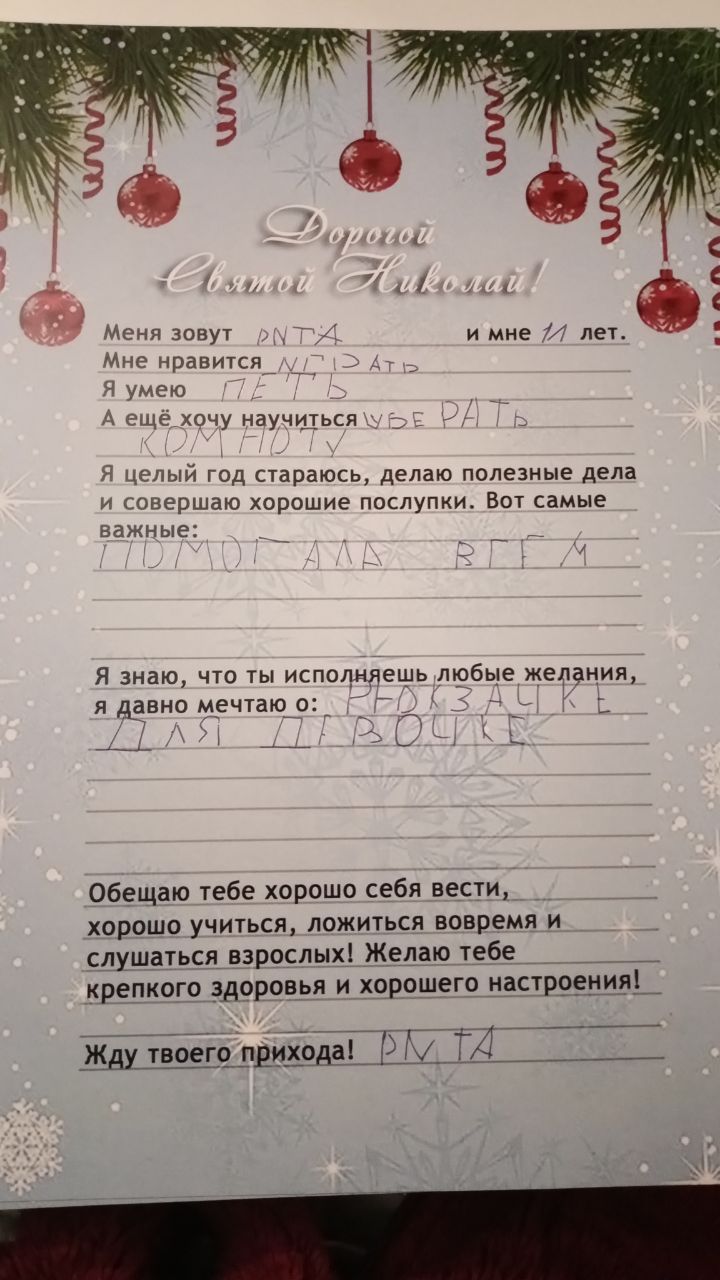 Дорогой
Святой Николай!
Меня зовут РNТА и мне 11 лет.
Мне нравится NГРАТЬ
Я умею ПЕТЬ
А ещё хочу научиться УБЕРАТЬ
КОМНОТУ
Я целый год стараюсь, делаю полезные дела
и совершаю хорошие послупки. Вот самые
важные:
ПОМОГАЛА ВГЕМ
Я знаю, что ты исполняешь любые желания,
я давно мечтаю о: РЬОКЗАЧКЕ
ДЛЯ ДЕВОЧКЕ
Обещаю тебе хорошо себя вести,
хорошо учиться, ложиться вовремя и
слушаться взрослых! Желаю тебе
крепкого здоровья и хорошего настроения!
Жду твоего прихода! РNТА